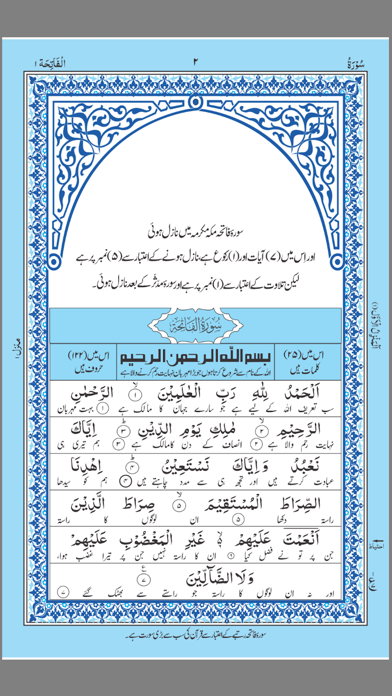 سُوْرَةُ
٢
الْفَاتِحَة ١
سورۂ فاتحہ مکہ مکرمہ میں نازل ہوئی
اور اِس میں (۷) آیات اور (۱) رکوع ہے، نازل ہونے کے اعتبار سے (۵) نمبر پر ہے
لیکن تلاوت کے اعتبار سے (۱) نمبر پر ہے اور سورۂ مدّثر کے بعد نازل ہوئی۔
سُوْرَةُ الْفَاتِحَةِ
اس میں (۲۵) کلمات ہیں
بسم الله الرحمن الرحيم
اللہ کے نام سے شروع کرتا ہوں جو بڑا مہربان نہایت رحم کرنے والا ہے
اس میں (۱۲۲) حروف ہیں
اَلْحَمْدُ لِلّٰهِ رَبِّ الْعٰلَمِيْنَ ۝١ الرَّحْمٰنِ
سب تعریف اللہ کے لیے ہے جو سارے جہان کا مالک ہے ۝١ بہت مہربان
الرَّحِيْمِ ۝٢ مٰلِكِ يَوْمِ الدِّيْنِ ۝٣ اِيَّاكَ
نہایت رحم والا ہے ۝٢ انصاف کے دن کا مالک ہے ۝٣ ہم تیری ہی
نَعْبُدُ وَاِيَّاكَ نَسْتَعِيْنُ ۝٤ اِهْدِنَا
عبادت کرتے ہیں اور تجھ ہی سے مدد چاہتے ہیں ۝٤ ہم کو سیدھا
الصِّرَاطَ الْمُسْتَقِيْمَ ۝٥ صِرَاطَ الَّذِيْنَ
راستہ دکھا ۝٥ ان لوگوں کا راستہ
اَنْعَمْتَ عَلَيْهِمْ ۝٦ غَيْرِ الْمَغْضُوْبِ عَلَيْهِمْ
جن پر تو نے فضل کیا ۝٦ ان کا راستہ نہیں جن پر تیرا غضب ہوا،
وَلَا الضَّآلِّيْنَ ۝٧
اور نہ ان لوگوں کا راستہ جو راستے سے بھٹک گئے ۝٧
سورۂ فاتحہ رتبے کے اعتبار سے قرآن کی سب سے بڑی سورت ہے۔
منزل ۱
احتیاط